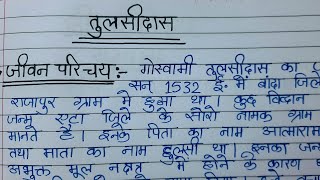 तुलसीदास
जीवन परिचय:- गोस्वामी तुलसीदास का
सन् 1532 ई॰ में बांदा जिले
राजापुर ग्राम में हुआ था। कुछ विद्वान
जन्म एटा जिले के सोरो नामक ग्राम
मानते हैं। इनके पिता का नाम आत्माराम
तथा माता का नाम हुलसी था। इनका जन्म
अभुक्त मूल नक्षत्र में होने के कारण